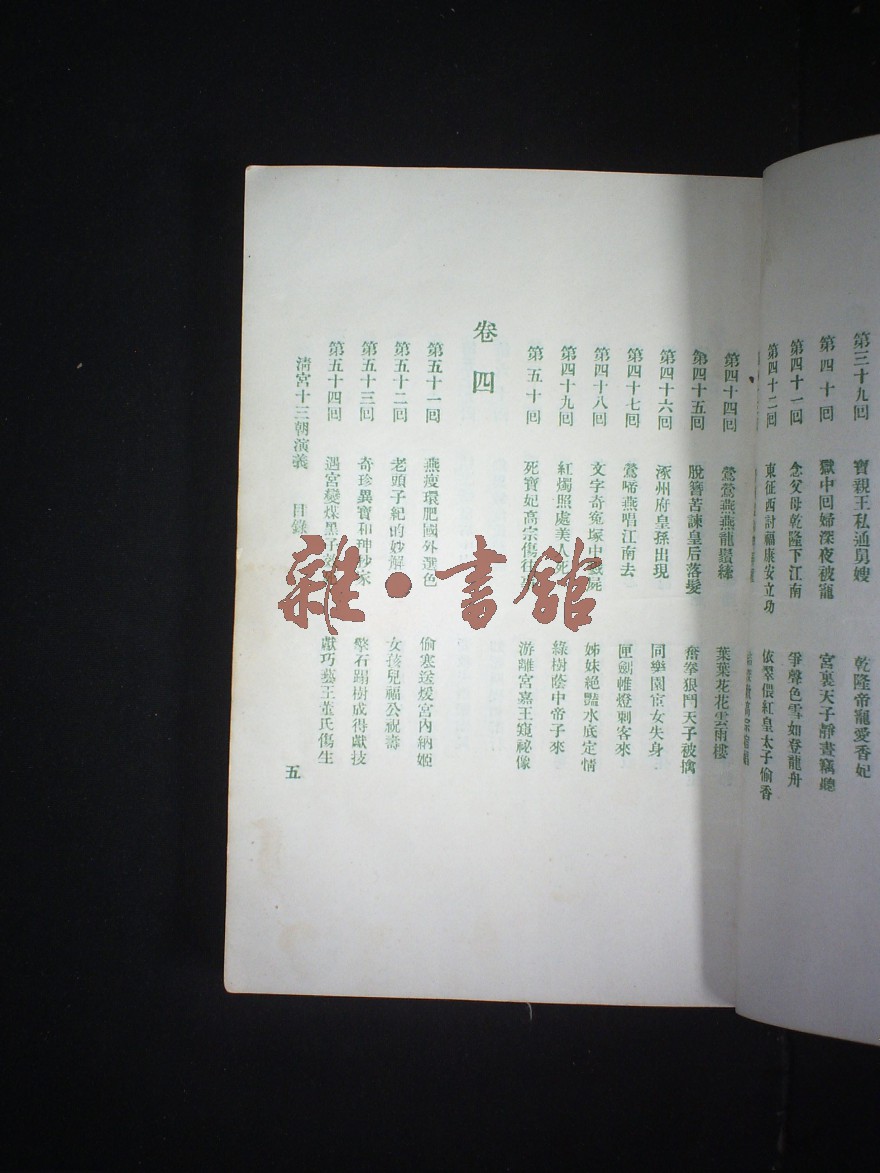 第三十九回 寶親王私通舅嫂 乾隆帝寵愛香妃
第四十回 獄中回婦深夜被寵 宮裏天子靜晝竊聽
第四十一回 念父母乾隆下江南 爭聲色雪如登龍舟
第四十二回 東征西討福康安立功 依翠偎紅皇太子偷香
第四十四回 鶯鶯燕燕龍鬚縴 葉葉花花雲雨樓
第四十五回 脫簪苦諫皇后落髮 奮拳狠鬥天子被擒
第四十六回 涿州府皇孫出現 同樂園宦女失身
第四十七回 鶯啼燕唱江南去 匣劍帷燈刺客來
第四十八回 文字奇冤塚中戮屍 姊妹絕豔水底定情
第四十九回 紅燭照處美人死 綠樹蔭中帝子來
第五十回 死寶妃高宗傷往 游離宮嘉王窺祕像
卷四
第五十一回 燕瘦環肥國外選色 偷寒送煖宮內納姬
第五十二回 老頭子紀的妙解 女孩兒福公祝壽
第五十三回 奇珍異寶和珅抄家 擎石蹋樹成得獻技
第五十四回 遇宮變煤黑子 獻巧藝王董氏傷生
清宮十三朝演義 目錄
五
雜•書館